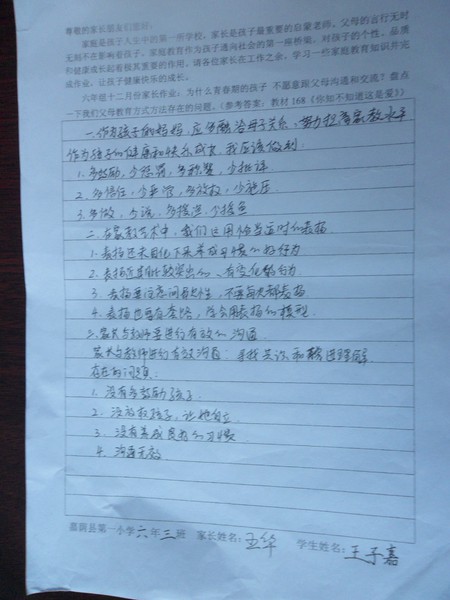 尊敬的家长朋友们您好：
家庭是孩子人生中的第一所学校，家长是孩子最重要的启蒙老师，父母的言行无时
无刻不在影响着孩子。家庭教育作为孩子通向社会的第一座桥梁，对孩子的个性、品质
和健康成长起着极其重要的作用。请各位家长在工作之余，学习一些家庭教育知识并完
成作业，让孩子健康快乐的成长。
六年组十二月份家长作业：为什么青春期的孩子 不愿意跟父母沟通和交流？盘点
一下我们父母教育方式方法存在的问题。（参考答案：教材168《你知不知道这是爱》）
一.作为孩子的妈妈，应多融洽母子关系，努力提高家教水平
作为孩子们健康和快乐成长，我应该做到：
1. 多鼓励，少惩罚，多称赞，少批评
2. 多信任，少 多放权，少
3. 多做，少说，多 少
二.在家教艺术中，我们运用恰当适时的表扬
1. 表扬还未固化下来养成习惯的好行为
2. 表扬 比较突出的、有变化的行为
3. 表扬要注意间 性，不要每次都表扬
4. 表扬也要有套路，学会用表扬的模型
三.家长与教师要进行有效的沟通
家长与教师进行有效沟通：寻找共识和 进理解
存在的问题：
1. 没有多鼓励孩子
2. 没放权孩子，让她自立
3. 没有养成良好的习惯
4. 沟通无效
嘉荫县第一小学六年三班 家长姓名：王华 学生姓名：王子嘉